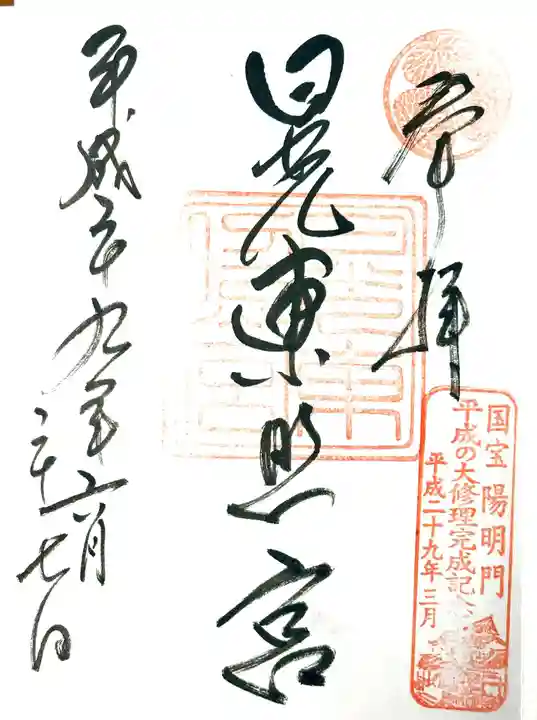 奉拝
日光東照宮
平成二十九年六月
二十七日
国宝 陽明門
平成の大修理完成記念
平成二十九年三月